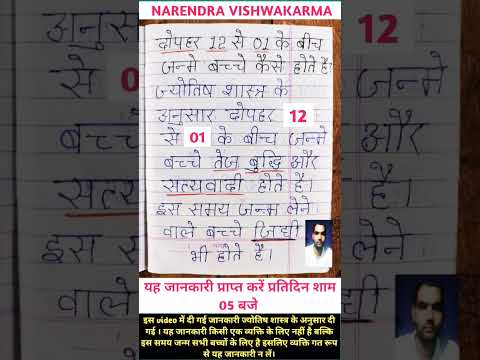 NARENDRA VISHWAKARMA
दोपहर 12 से 01 के बीच
जन्मे बच्चे कैसे होते हैं।
ज्योतिष शास्त्र के
अनुसार दोपहर 12
से 01 के बीच जन्मे
बच्चे तेज बुद्धि और
सत्यवादी होते हैं।
इस समय जन्म लेने
वाले बच्चे जिद्दी
भी होते हैं।
यह जानकारी प्राप्त करें प्रतिदिन शाम
05 बजे
इस video में दी गई जानकारी ज्योतिष शास्त्र के अनुसार दी
गई । यह जानकारी किसी एक व्यक्ति के लिए नहीं है बल्कि
इस समय जन्म सभी बच्चों के लिए है इसलिए व्यक्ति गत रूप
से यह जानकारी न लें।